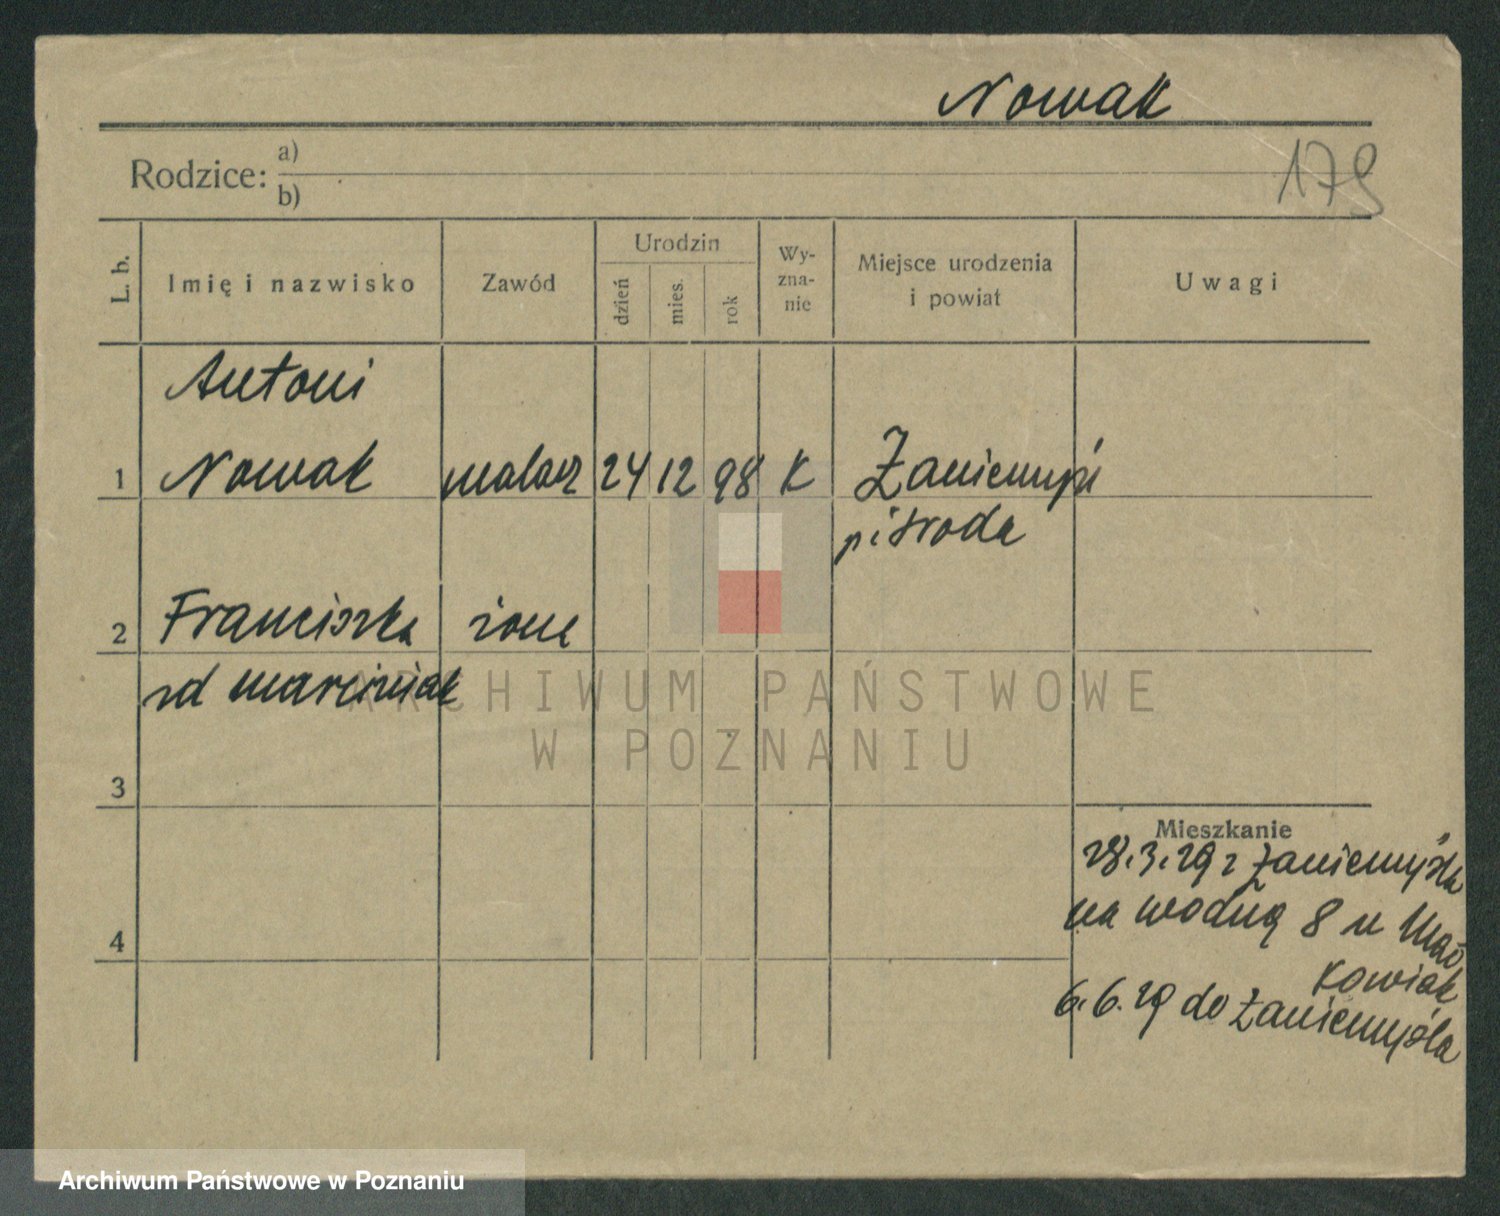 Nowak
179
Rodzice: a)
b)
L. b.
Imię i nazwisko
Zawód
Urodzin
dzień
mies.
rok
Wy-
zna-
nie
Miejsce urodzenia
i powiat
Uwagi
Antoni
1 Nowak malarz 24 12 98 K Zaniemyśl
p Środa
2 Franciszka żona
zd Marciniak
3
4
Mieszkanie
28.3.29 z Zaniemyśla
na wodną 8 u
kowiak
6.6.29 do Zaniemyśla
ARCHIWUM PAŃSTWOWE
W POZNANIU
Archiwum Państwowe w Poznaniu